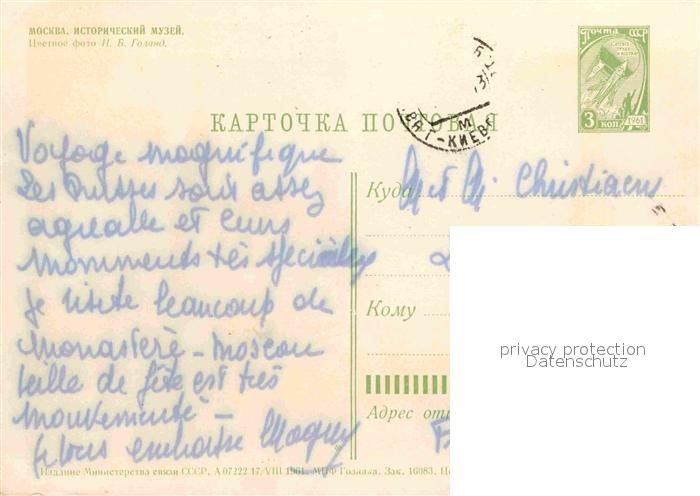 МОСКВА. ИСТОРИЧЕСКИЙ МУЗЕЙ.
Цветное фото И. Б. Голанд.
ПОЧТА СССР
3 КОП
1961
КАРТОЧКА ПОЧТОВАЯ
КИЕВ
Voyage magnifique
Les Russes sont assez
agréable et leurs
monuments très spéciales
je visite beaucoup de
monastère - Moscou
ville de fête est très
mouvementé -
je vous embrasse Maguy
Куда M et Me Christiaens
Кому
Адрес отп
privacy protection
Datenschutz
Издание Министерства связи СССР. А 07222 17/VIII 1961. МПФ Гознака. Зак. 16083. Ц